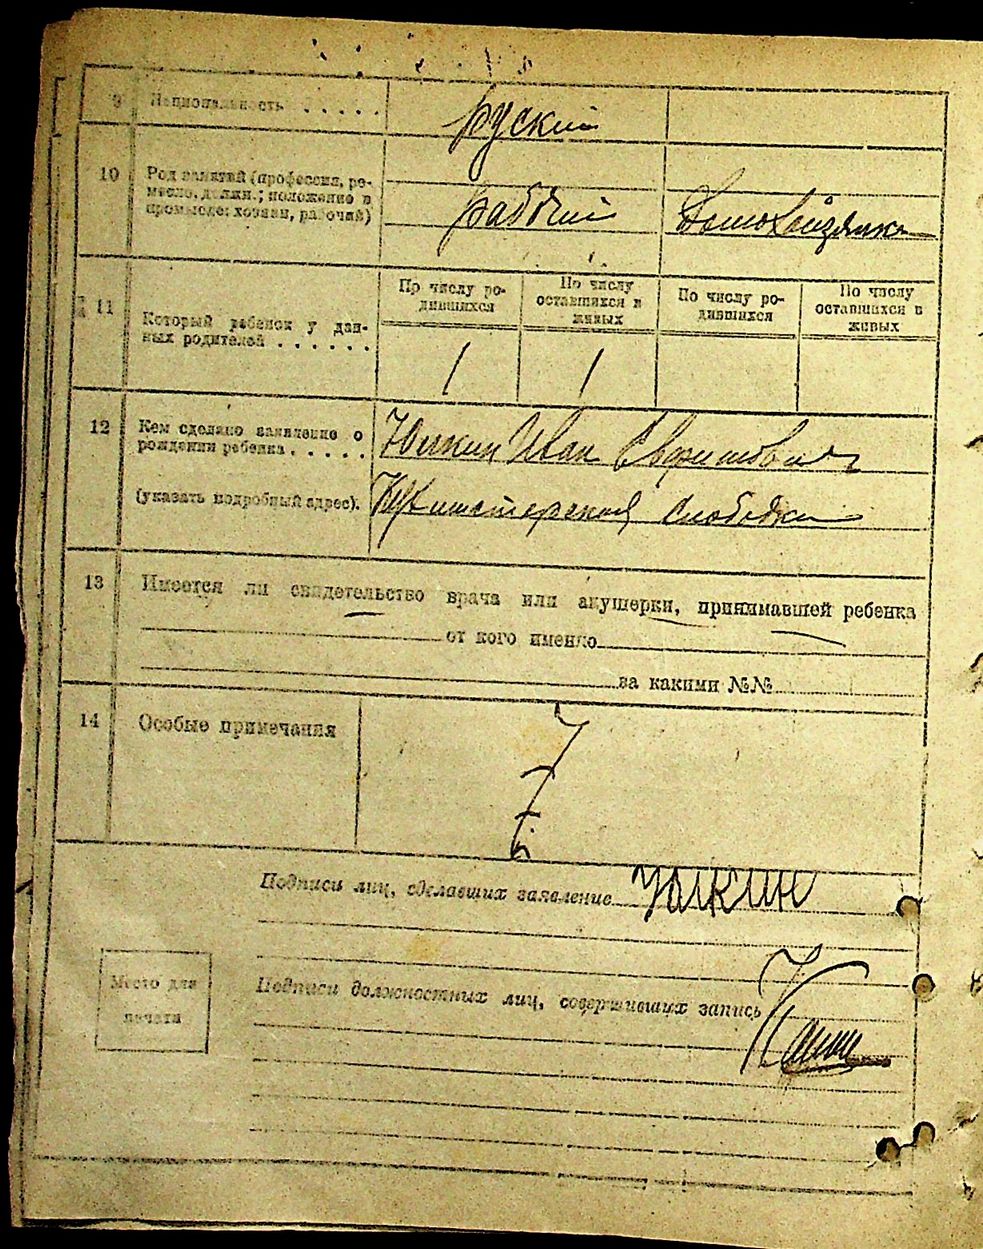 9 Национальность . . . . . руский
10 Род занятий (профессия, ре-
месло, должн.; положение в
промысле: хозяин, рабочий) рабочий Домохозяйка
11 Который ребенок у дан-
ных родителей . . . . . .
По числу ро-
дившихся
По числу
оставшихся в
живых
По числу ро-
дившихся
По числу
оставшихся в
живых
1 1
12 Кем сделано заявление о
рождении ребенка . . . . .
(указать подробный адрес).
Иван Евфимович
слободка
13 Имеется ли свидетельство врача или акушерки, принимавшей ребенка
от кого именно
за какими №№
14 Особые примечания
Подписи лиц, сделавших заявление
Место для
печати
Подписи должностных лиц, совершивших запись